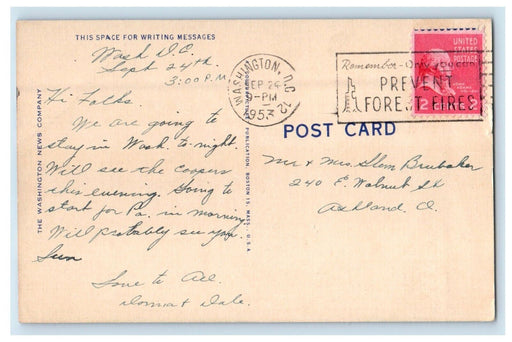 THIS SPACE FOR WRITING MESSAGES
Wash D.C.
Sept 24th
3:00 P.M.
Hi Folks.
We are going to
stay in Wash. to-night.
Will see the Coopers
this evening. Going to
start for Pa. in morning
Will probably see you
Sun
Love to All.
Donna + Dale.
THE WASHINGTON NEWS COMPANY
PUBLICATION BOSTON 15, MASS., U.S.A.
WASHINGTON, D.C. 12
SEP 24
9-PM
1953
Remember - Only you can
PREVENT
FOREST FIRES
UNITED
STATES
POSTAGE
2 2
POST CARD
Mr + Mrs. Glenn Brubaker
240 E. Walnut St
Ashland O.